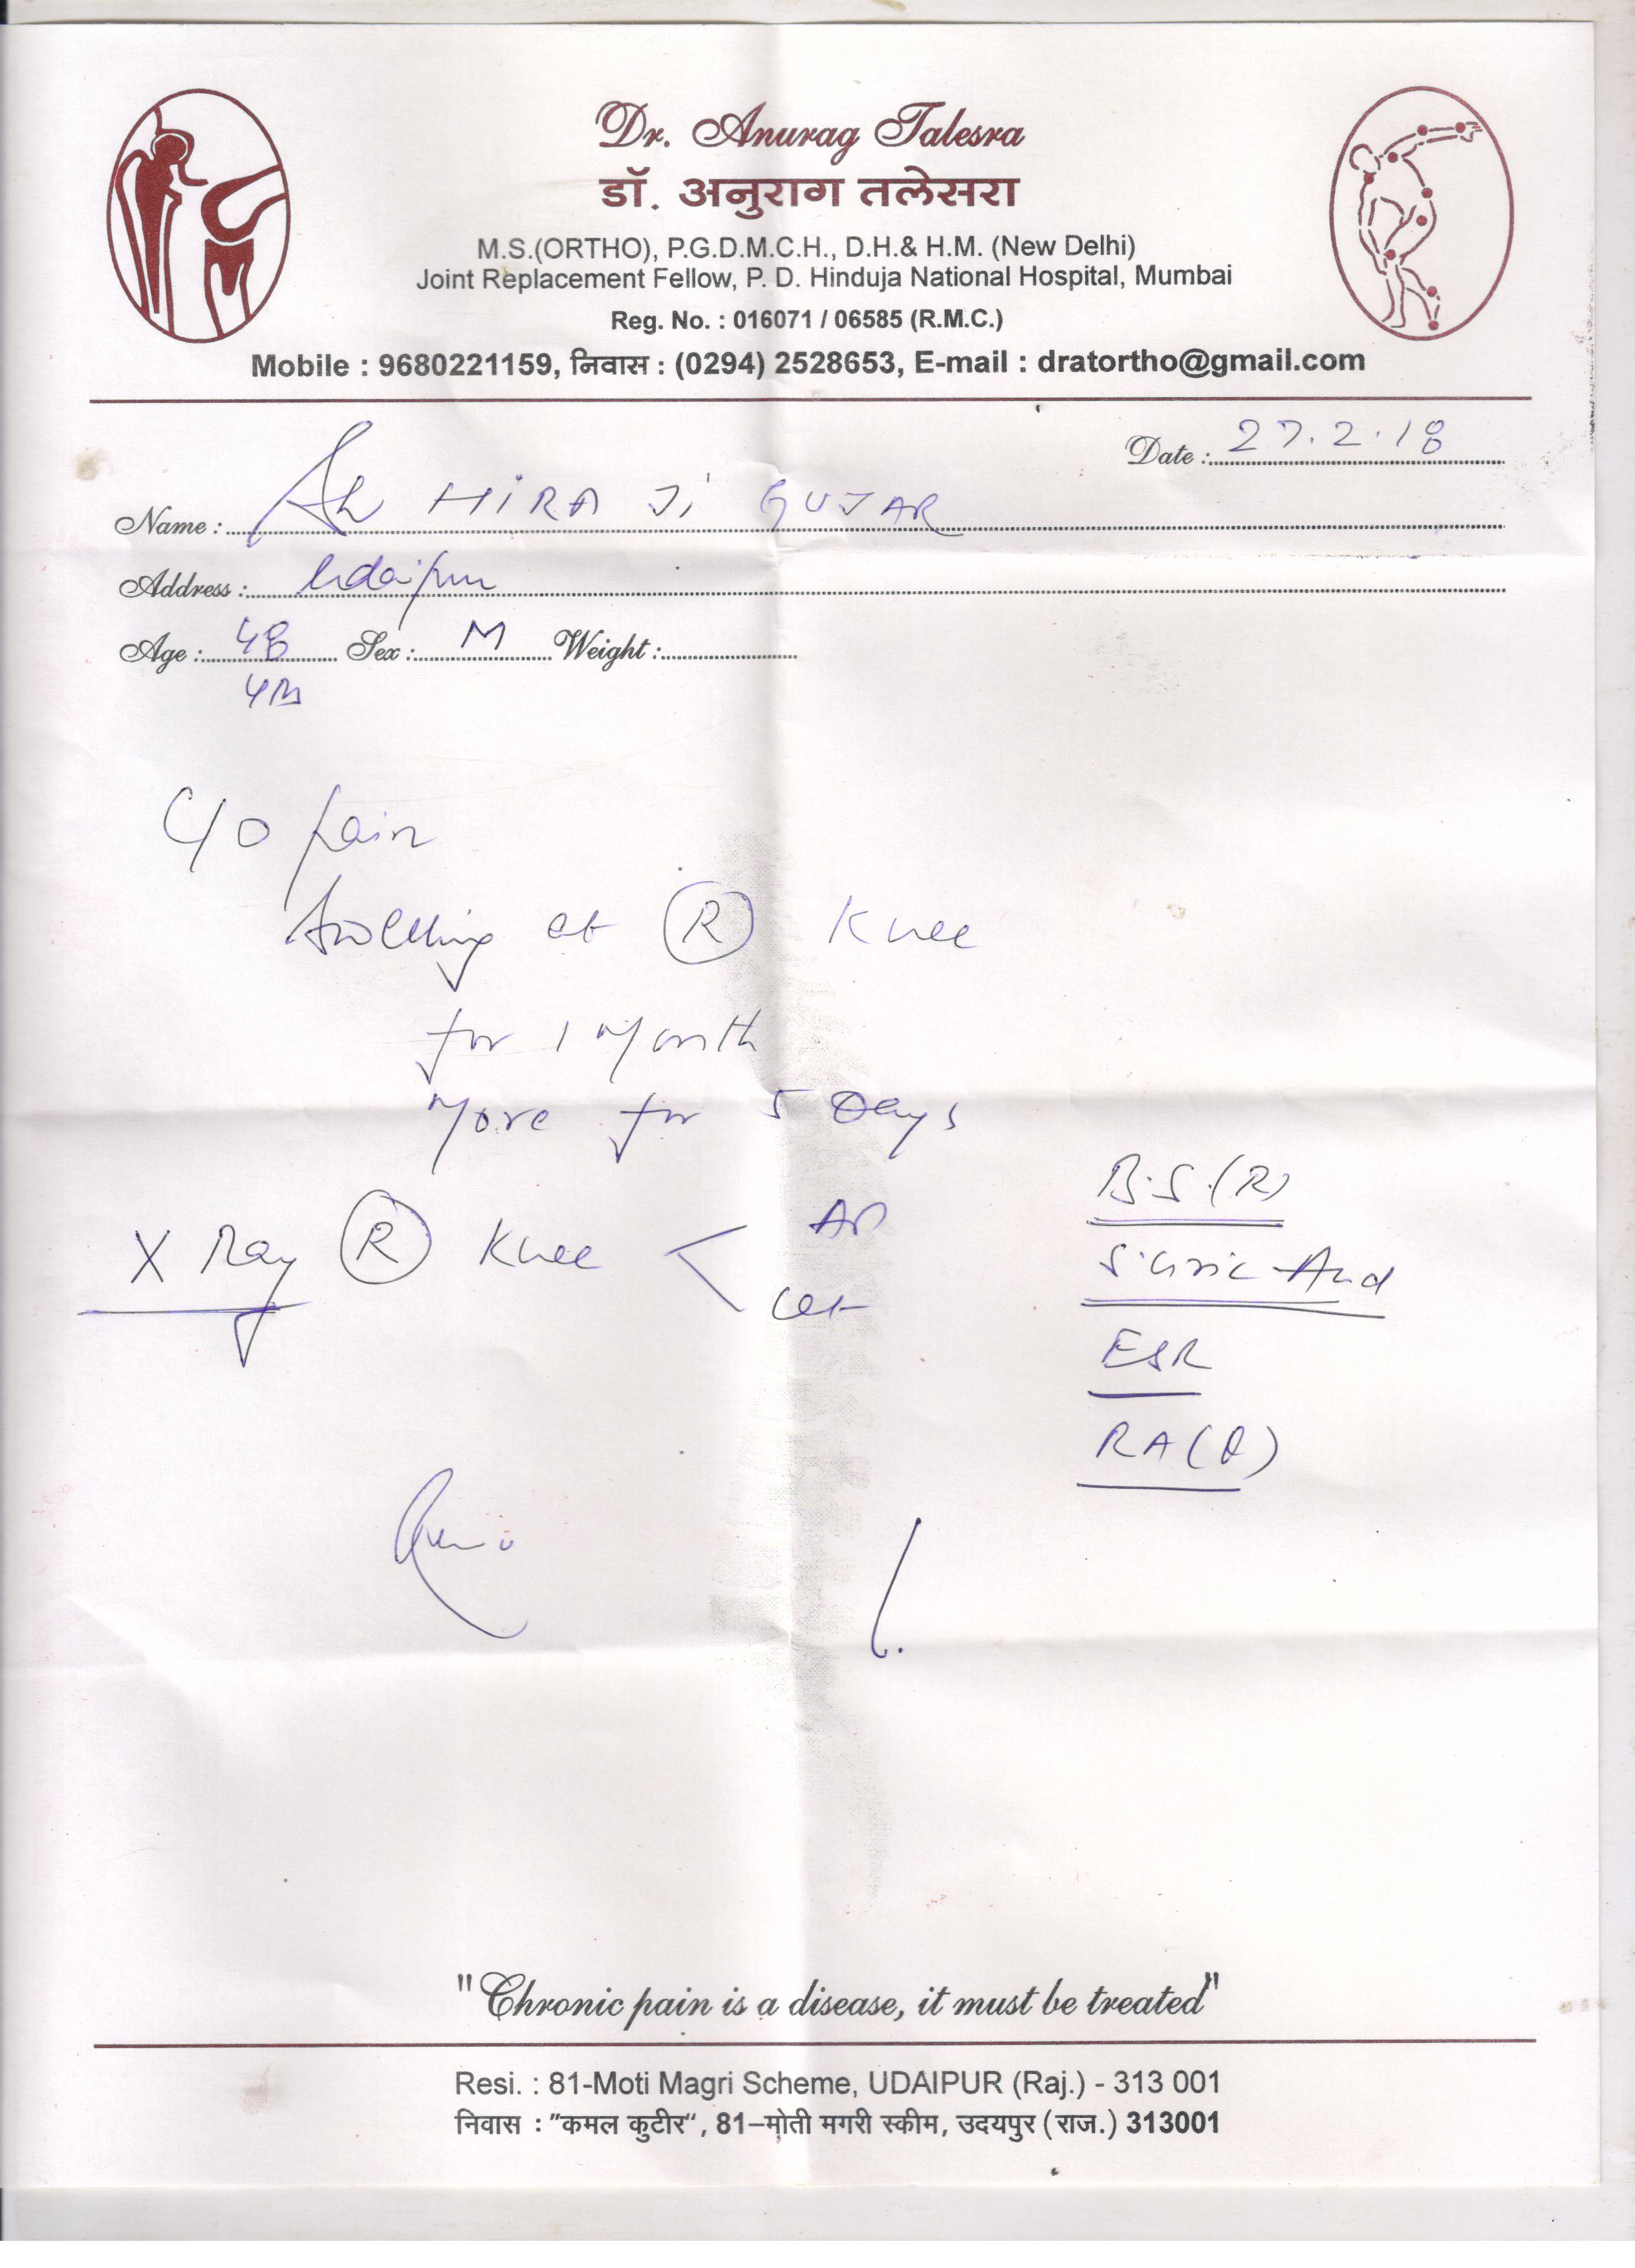 Dr. Anurag Talesra
डॉ. अनुराग तलेसरा
M.S.(ORTHO), P.G.D.M.C.H., D.H.& H.M. (New Delhi)
Joint Replacement Fellow, P. D. Hinduja National Hospital, Mumbai
Reg. No. : 016071 / 06585 (R.M.C.)
Mobile : 9680221159, निवास : (0294) 2528653, E-mail : dratortho@gmail.com
Date : 27.2.18
Name : HIRA Ji GUJAR
Address : Udaipur
Age : 48 Sex : M Weight :
C/O pain
Swelling at (R) Knee
for 1 Month
More for 5 Days
X Ray (R) Knee < AP
Lat
B.S.(R)
S. Uric Acid
ESR
RA (Q)
"Chronic pain is a disease, it must be treated"
Resi. : 81-Moti Magri Scheme, UDAIPUR (Raj.) - 313 001
निवास : "कमल कुटीर", 81–मोती मगरी स्कीम, उदयपुर (राज.) 313001